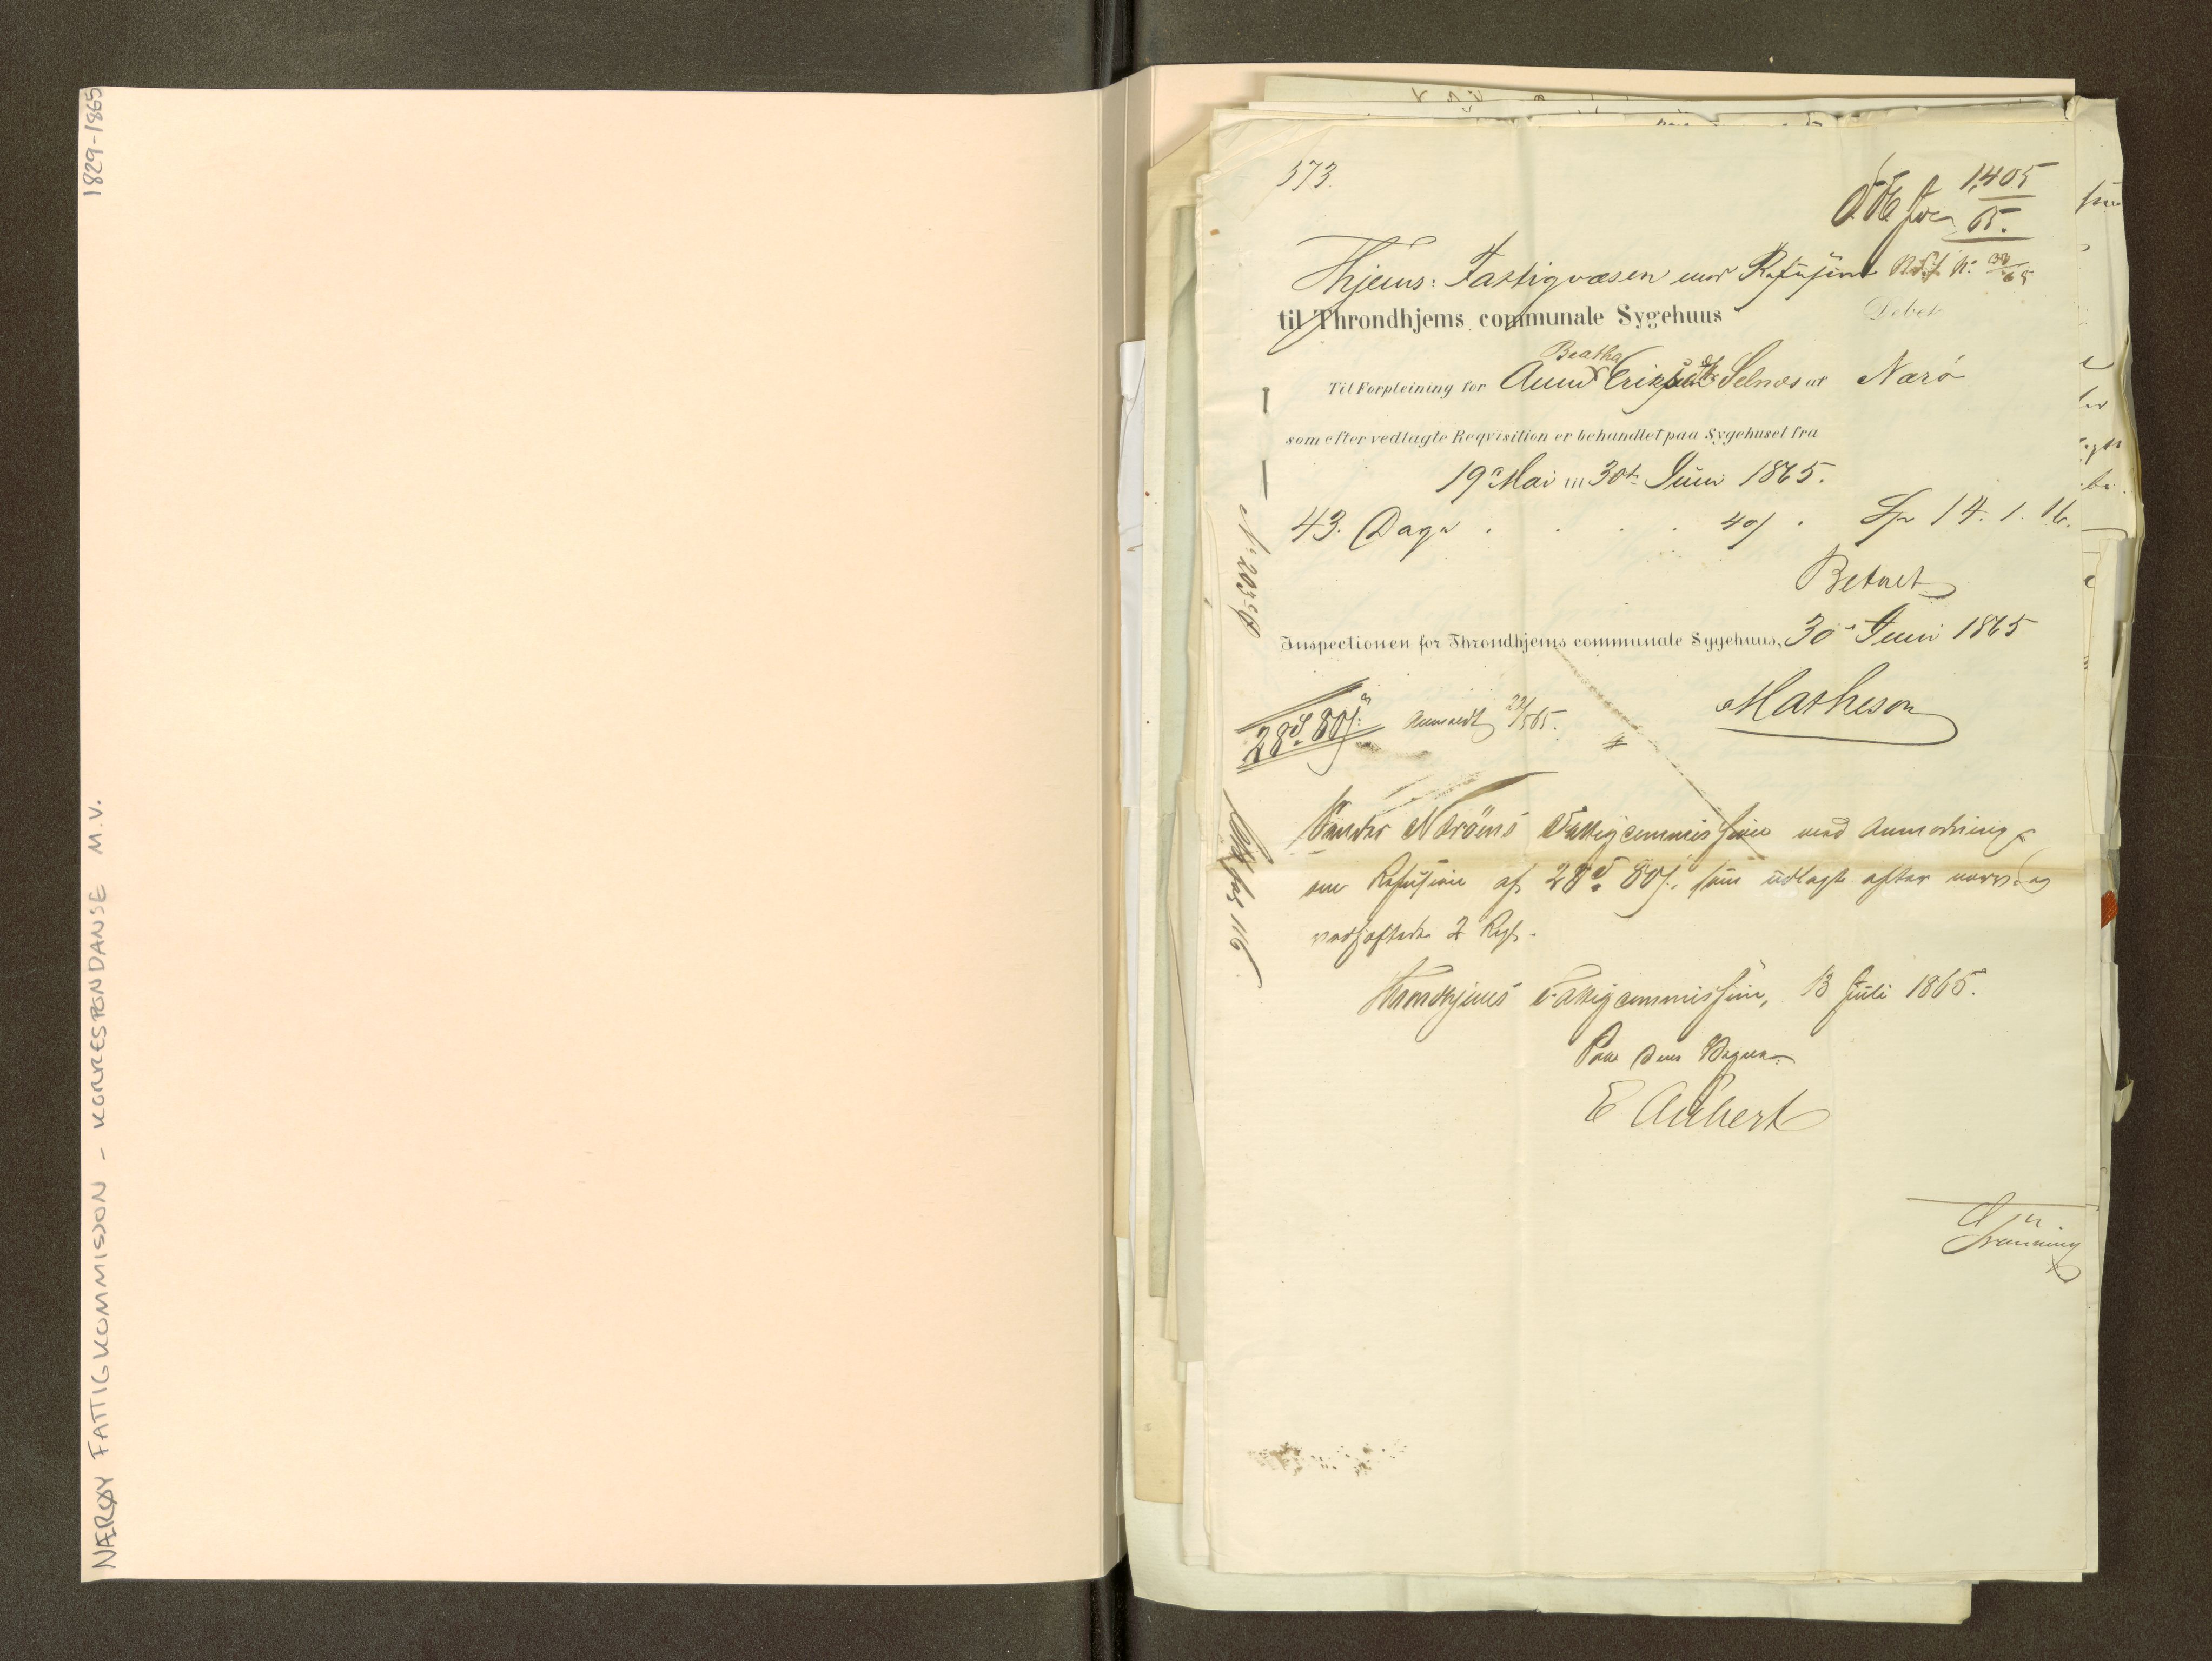 NÆRØY FATTIGKOMMISSJON - KORRESPONDANSE M.V. 1829-1865
573.
1,405
65.
Thjems: Fattigvæsen mod Refusion
til Throndhjems communale Sygehuus Debet
Beatha
Til Forpleining for Anna Eriksdtr Selnæs af Nærö
som efter vedlagte Reqvisition er behandlet paa Sygehuset fra
19de Mai til 30te Juni 1865.
43. Dage . . . . 40/ . Sp 14. 1. 16.
Betalt
Inspectionen for Throndhjems communale Sygehuus, 30te Juni 1865
Matheson
28d 80/: Anmeldt 22/5 65.
Sendes Nærøens Fattigcommission med Anmodning
om Refusion af 28d 80/:, som udlagt efter nærv: og
vedheftede 2 Regn.
Throndhjems Fattigcommission, 13 Juli 1865.
Paa dens Vegne
E Aubert
N: 203
116